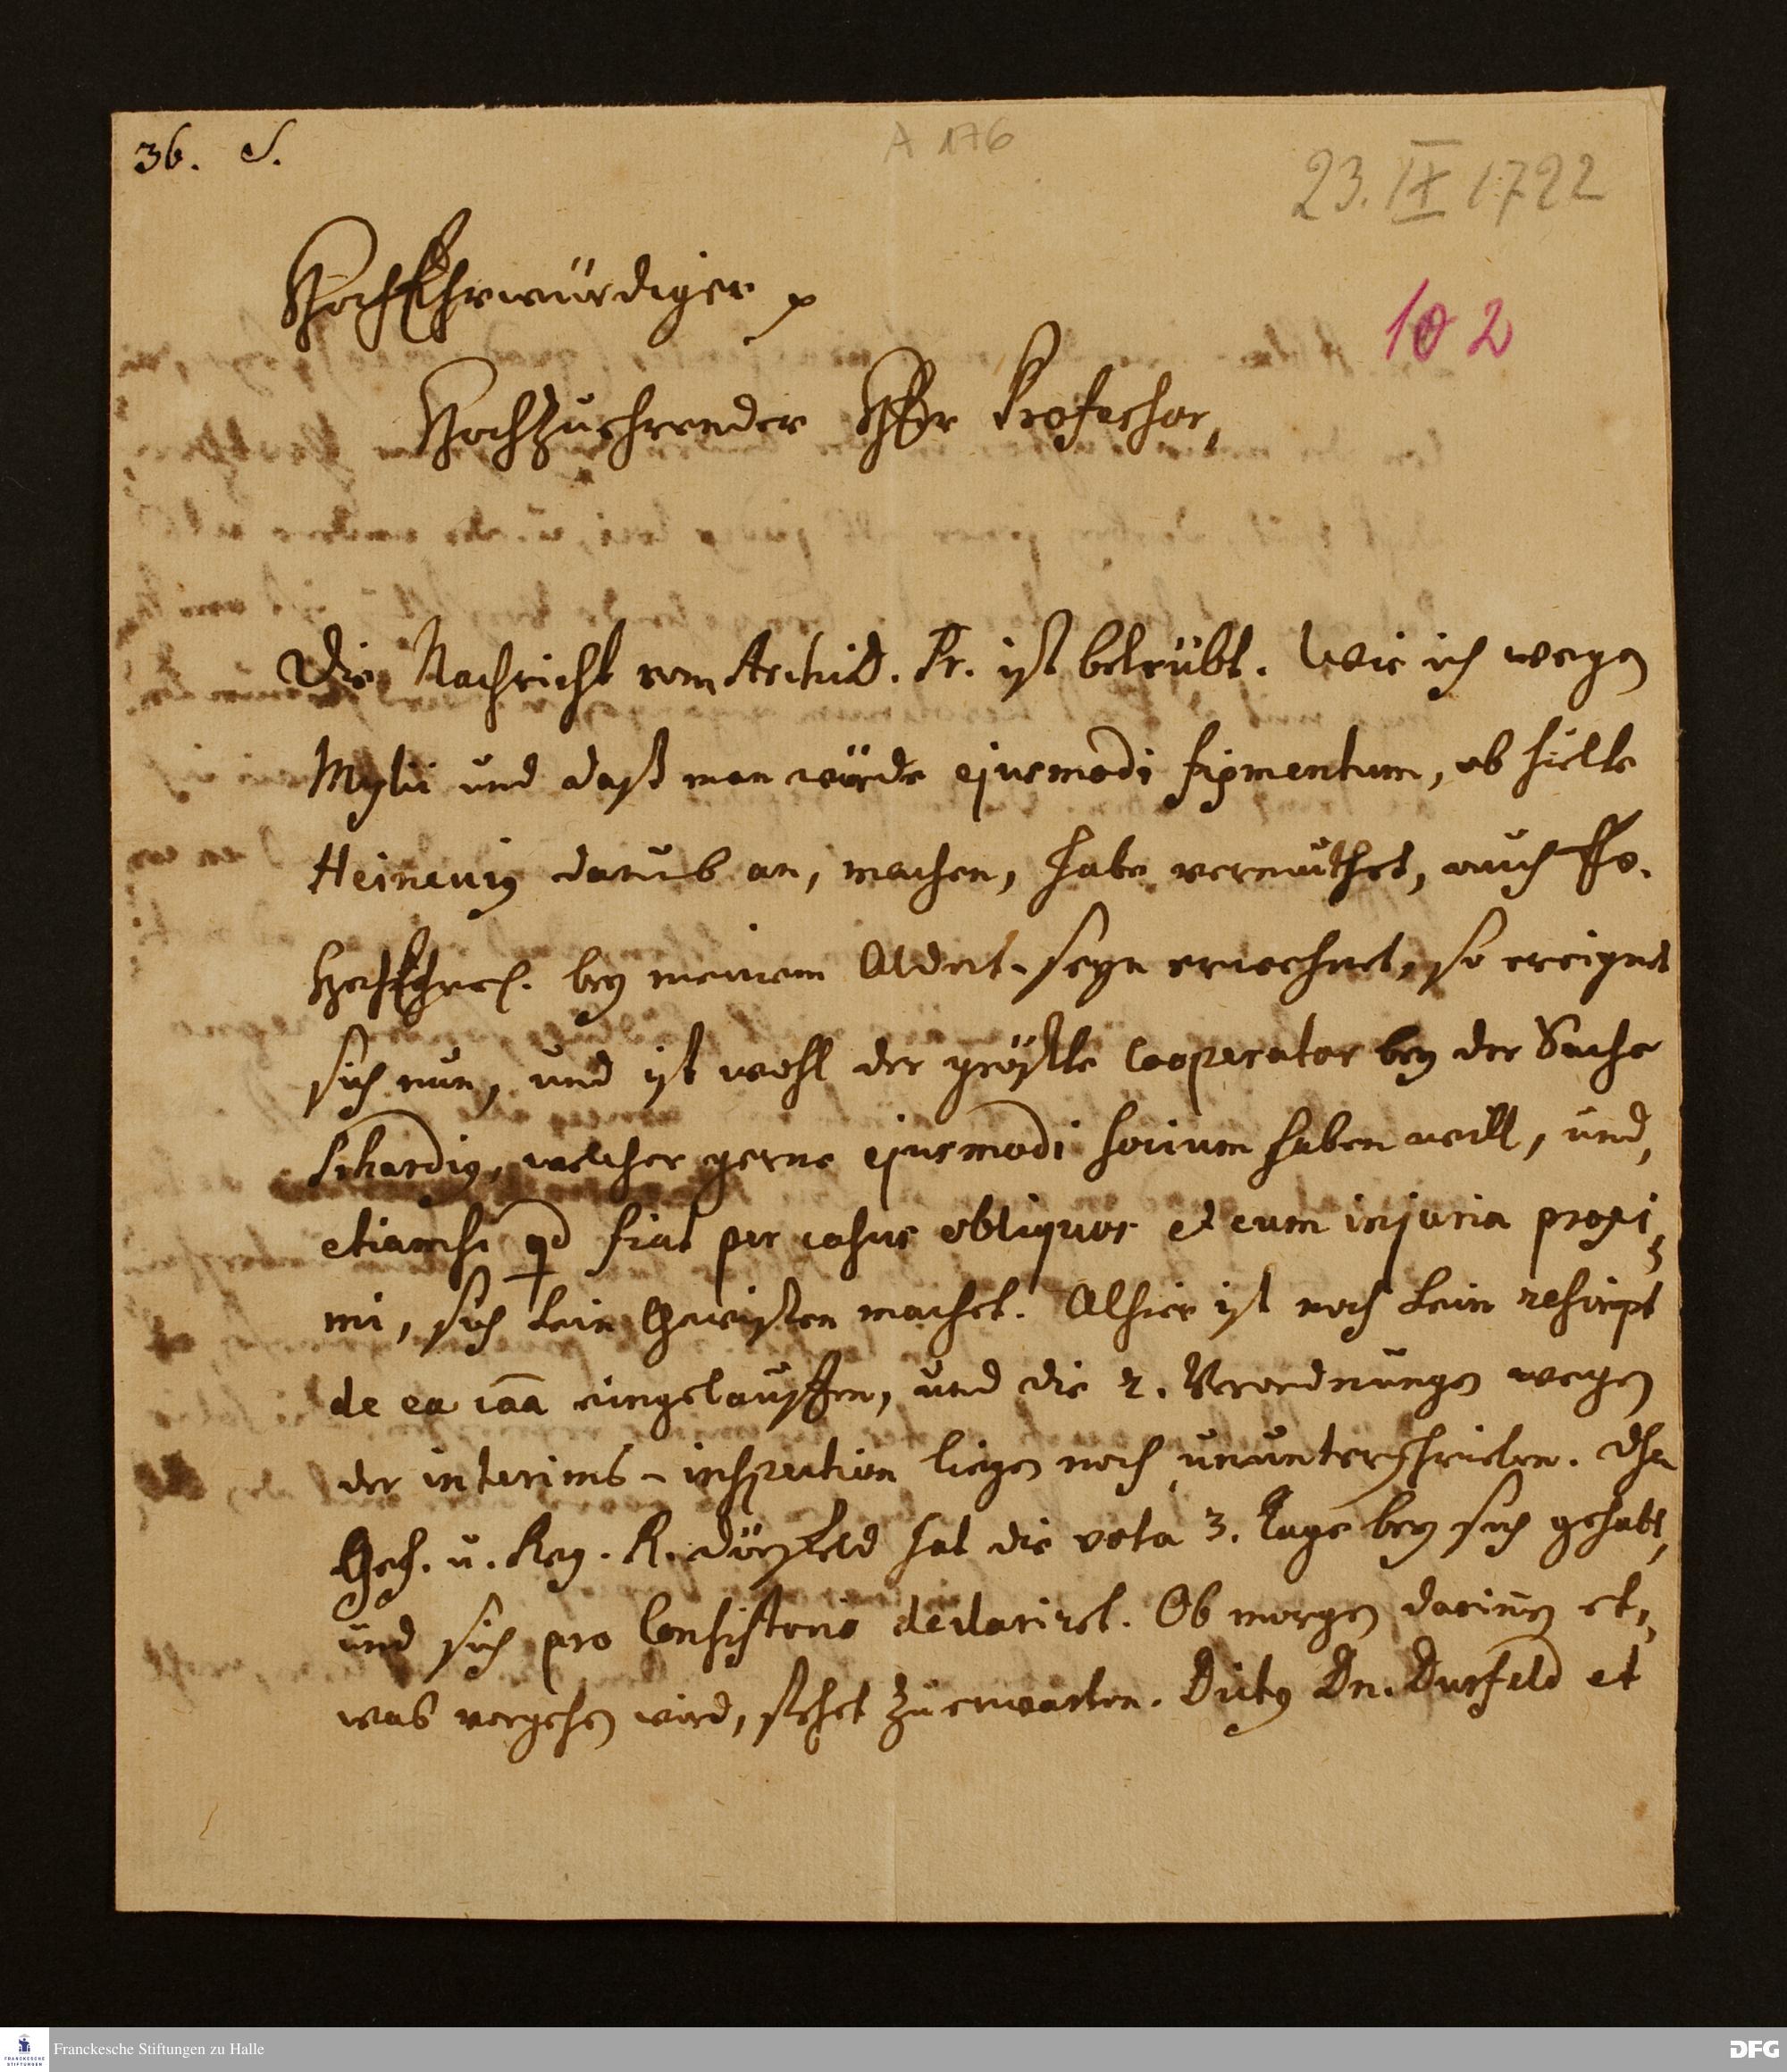 36. S.
A 176
23. IX 1722
102
HochEhrwürdiger p
HochzuEhrender HErr Professor,
Die Nachricht vom Archid. Fr. ist betrübt. Wie ich wegen
Mylii und daß man würde ejusmodi figmentum, ob hielte
Heineccig darumb an, machen, habe vermuthet, auch Ew.
HochEhrw. bey meinem Aldort-seyn erwehnet, so ereignet
sich nun, und ist wohl der gröste Cooperator bey der Sache
welcher gerne ejusmodi socium haben will, und,
etiamsi qd fiat per casus obliquos et cum injuria proxi,
mi, sich kein Gewissen machet. Alhier ist noch kein rescript
de ea caa eingelauffen, und die 2. Verordnungen wegen
der interims-inspection liegen noch ununterschrieben. Dhr
Geh. u. Reg. R. Dürfeld hat die vota 3. Tage bey sich gehabt,
und sich pro Consistorio declariret. Ob morgen darinn et,
was vorgehen wird, stehet zu erwarten. Dictg Dn. Durfeld et
Franckesche Stiftungen zu Halle
FRANCKESCHE
STIFTUNGEN
DFG